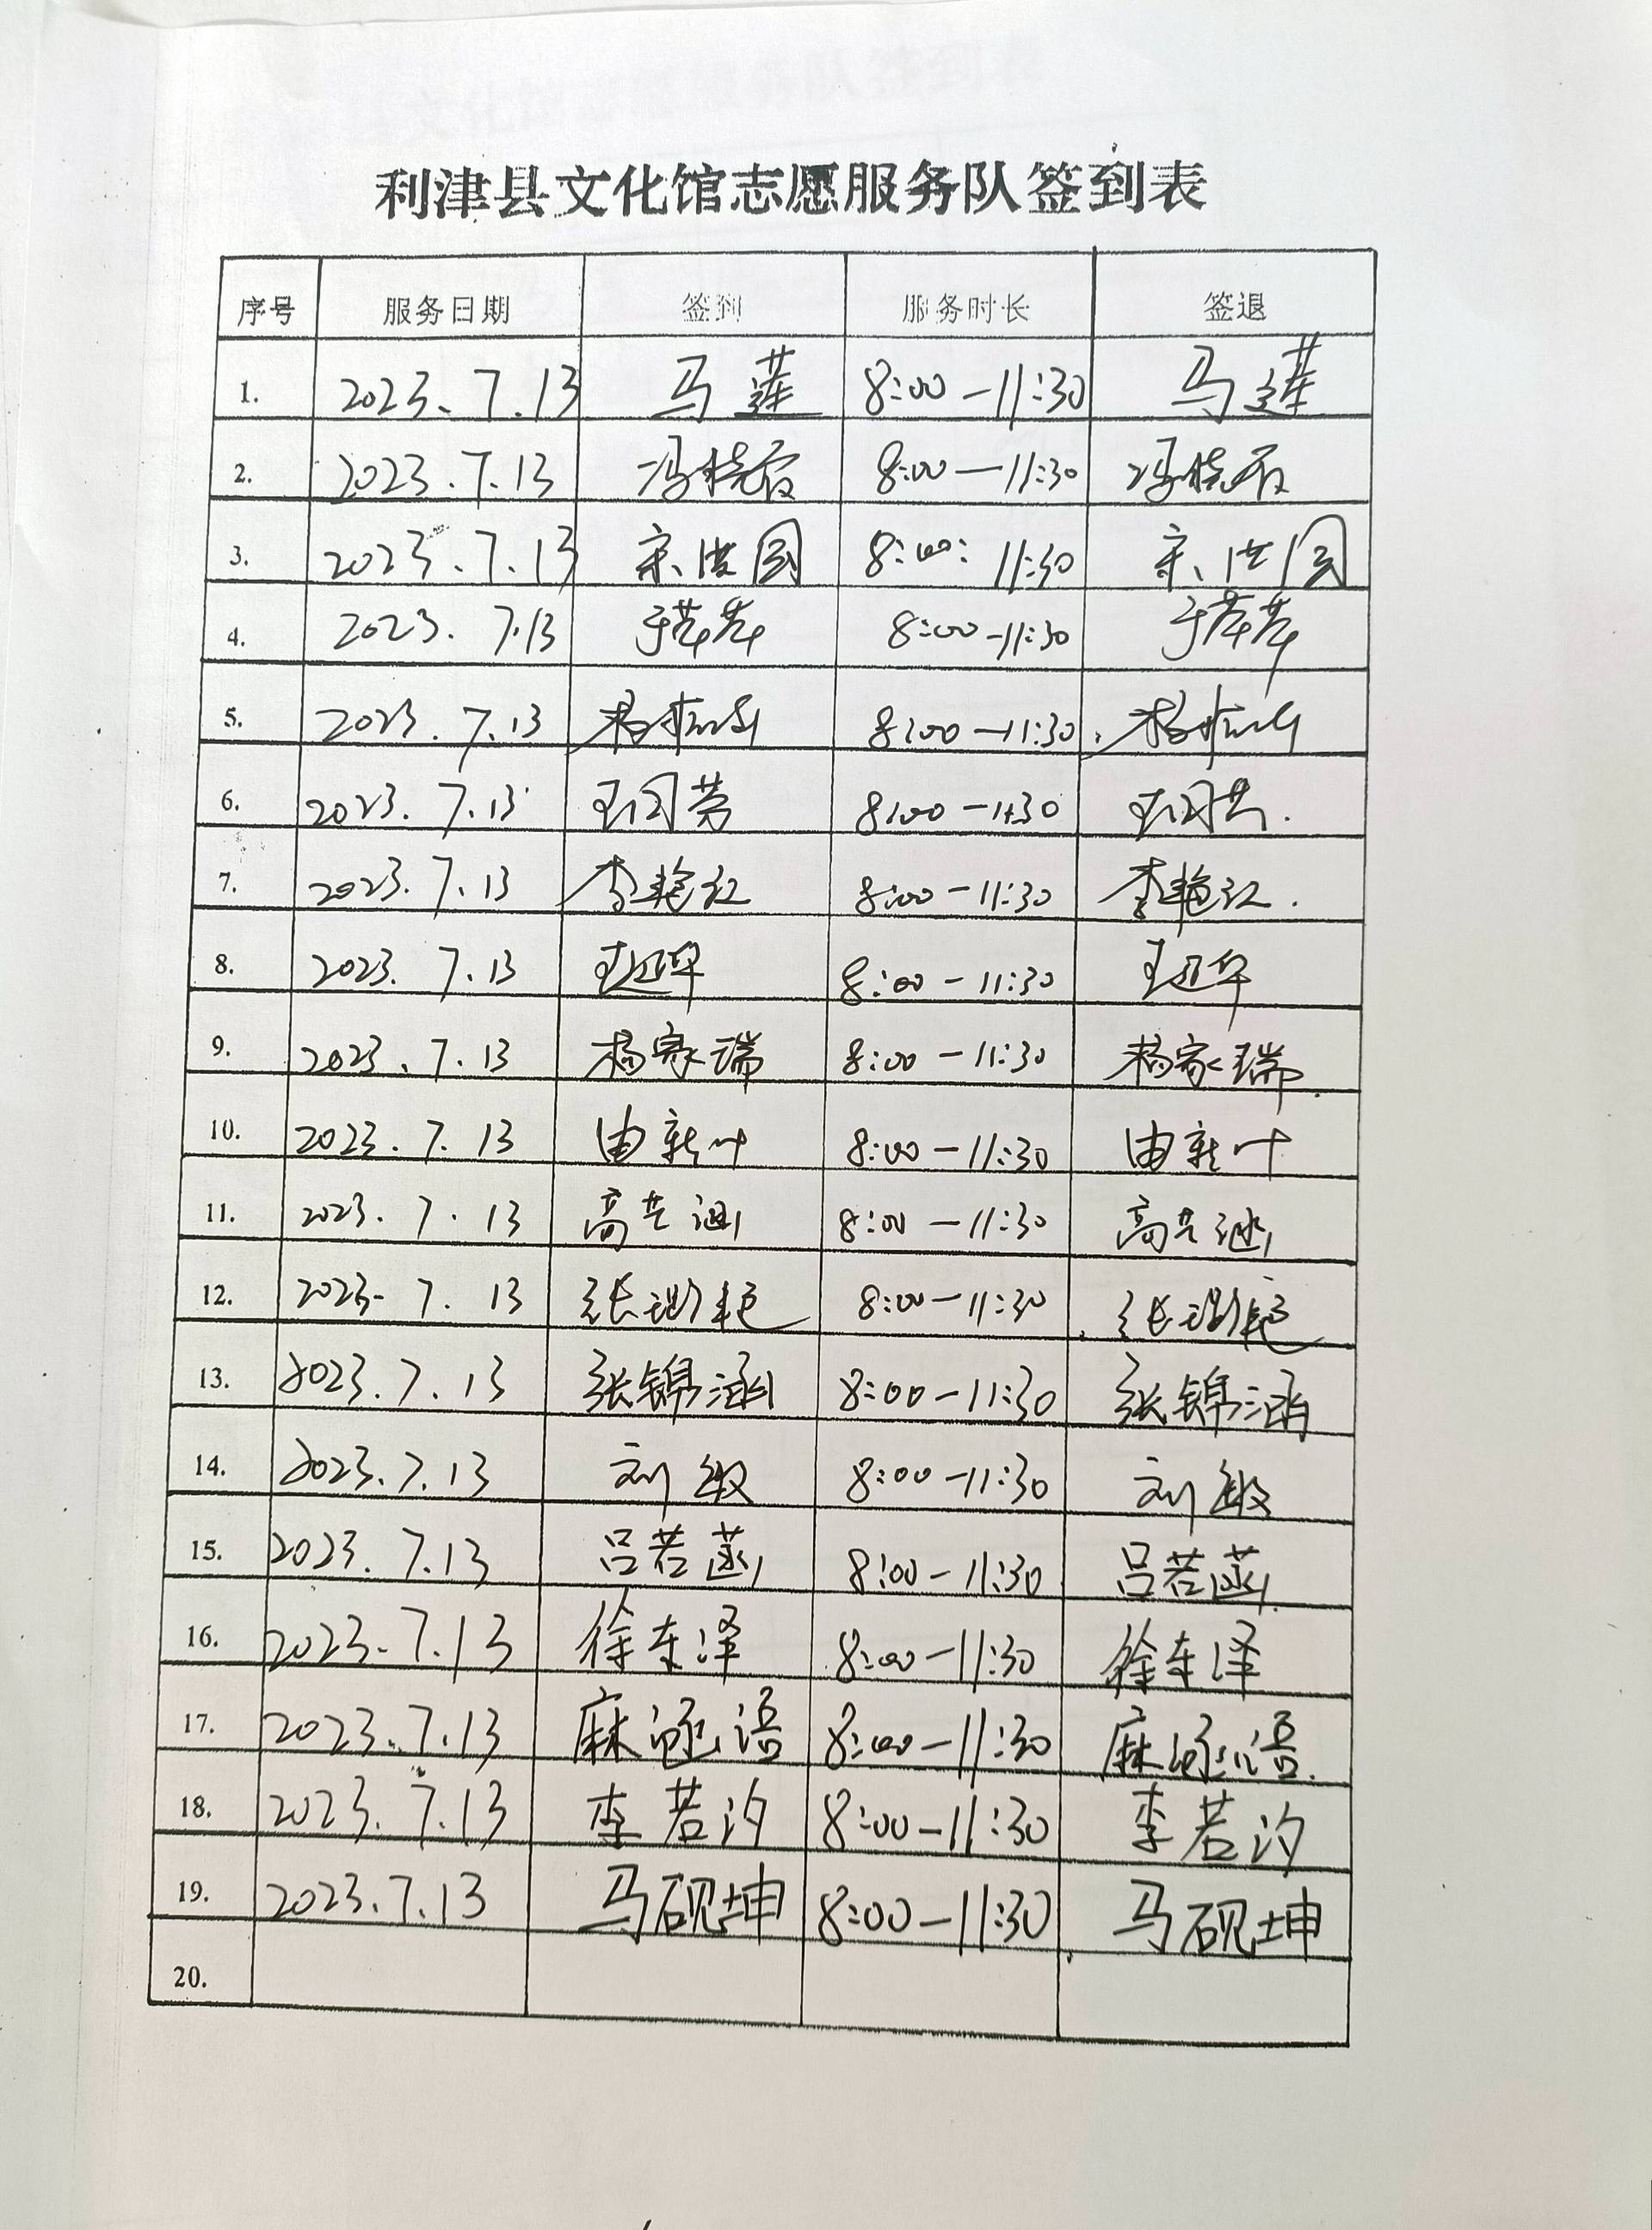 利津县文化馆志愿服务队签到表
序号 服务日期 签到 服务时长 签退
1. 2023.7.13 马莲 8:00-11:30 马莲
2. 2023.7.13 冯晓霞 8:00-11:30 冯晓霞
3. 2023.7.13 宋洪国 8:00: 11:30 宋洪国
4. 2023.7.13 于芹芹 8:00-11:30 于芹芹
5. 2023.7.13 8:00-11:30
6. 2023.7.13 8:00-11:30
7. 2023.7.13 李艳红 8:00-11:30 李艳红
8. 2023.7.13 王延华 8:00-11:30 王延华
9. 2023.7.13 杨家瑞 8:00-11:30 杨家瑞
10. 2023.7.13 由新叶 8:00-11:30 由新叶
11. 2023.7.13 高艺涵 8:00-11:30 高艺涵
12. 2023.7.13 8:00-11:30
13. 2023.7.13 张锦涵 8:00-11:30 张锦涵
14. 2023.7.13 刘敏 8:00-11:30 刘敏
15. 2023.7.13 吕若菡 8:00-11:30 吕若菡
16. 2023.7.13 徐东泽 8:00-11:30 徐东泽
17. 2023.7.13 8:00-11:30
18. 2023.7.13 李若汐 8:00-11:30 李若汐
19. 2023.7.13 马砚坤 8:00-11:30 马砚坤
20.